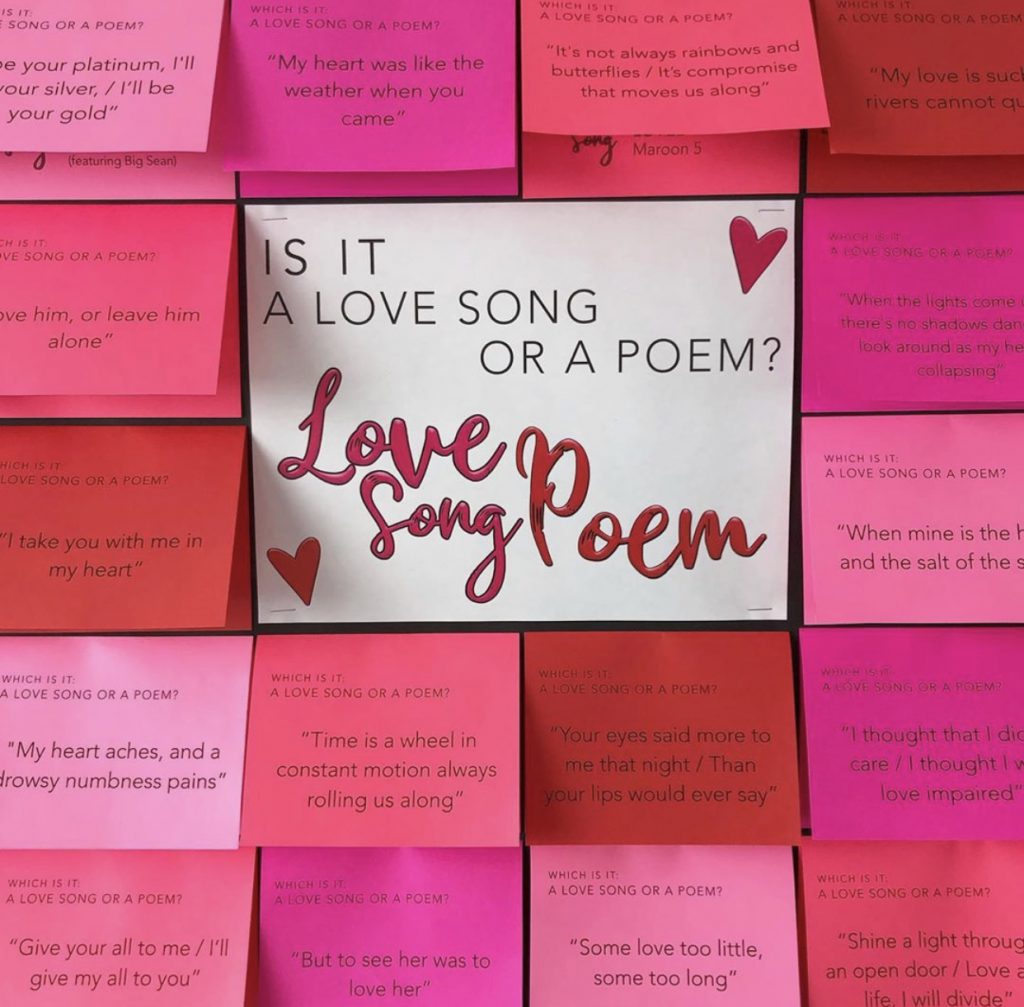 S IT:
E SONG OR A POEM?
be your platinum, I'll
your silver, / I'll be
your gold”
(featuring Big Sean)
WHICH IS IT:
A LOVE SONG OR A POEM?
“My heart was like the
weather when you
came”
WHICH IS IT:
A LOVE SONG OR A POEM?
“It's not always rainbows and
butterflies / It's compromise
that moves us along”
Song
Maroon 5
WHICH IS IT:
A LOVE SONG OR A POEM
“My love is suc
rivers cannot qu
CH IS IT:
OVE SONG OR A POEM?
ove him, or leave him
alone”
IS IT
A LOVE SONG
OR A POEM?
Love
Song
Poem
WHICH IS IT:
A LOVE SONG OR A POEM?
“When the lights come
there's no shadows dan
look around as my he
collapsing”
HICH IS IT:
LOVE SONG OR A POEM?
“I take you with me in
my heart”
WHICH IS IT:
A LOVE SONG OR A POEM?
“When mine is the h
and the salt of the s
WHICH IS IT:
A LOVE SONG OR A POEM?
"My heart aches, and a
drowsy numbness pains”
WHICH IS IT:
A LOVE SONG OR A POEM?
“Time is a wheel in
constant motion always
rolling us along”
WHICH IS IT:
A LOVE SONG OR A POEM?
“Your eyes said more to
me that night / Than
your lips would ever say”
WHICH IS IT:
A LOVE SONG OR A POEM?
“I thought that I did
care / I thought I w
love impaired”
WHICH IS IT:
A LOVE SONG OR A POEM?
“Give your all to me / I'll
give my all to you”
WHICH IS IT:
A LOVE SONG OR A POEM?
“But to see her was to
love her”
WHICH IS IT:
A LOVE SONG OR A POEM?
“Some love too little,
some too long”
WHICH IS IT:
A LOVE SONG OR A POEM?
“Shine a light throug
an open door / Love a
life, I will divide”